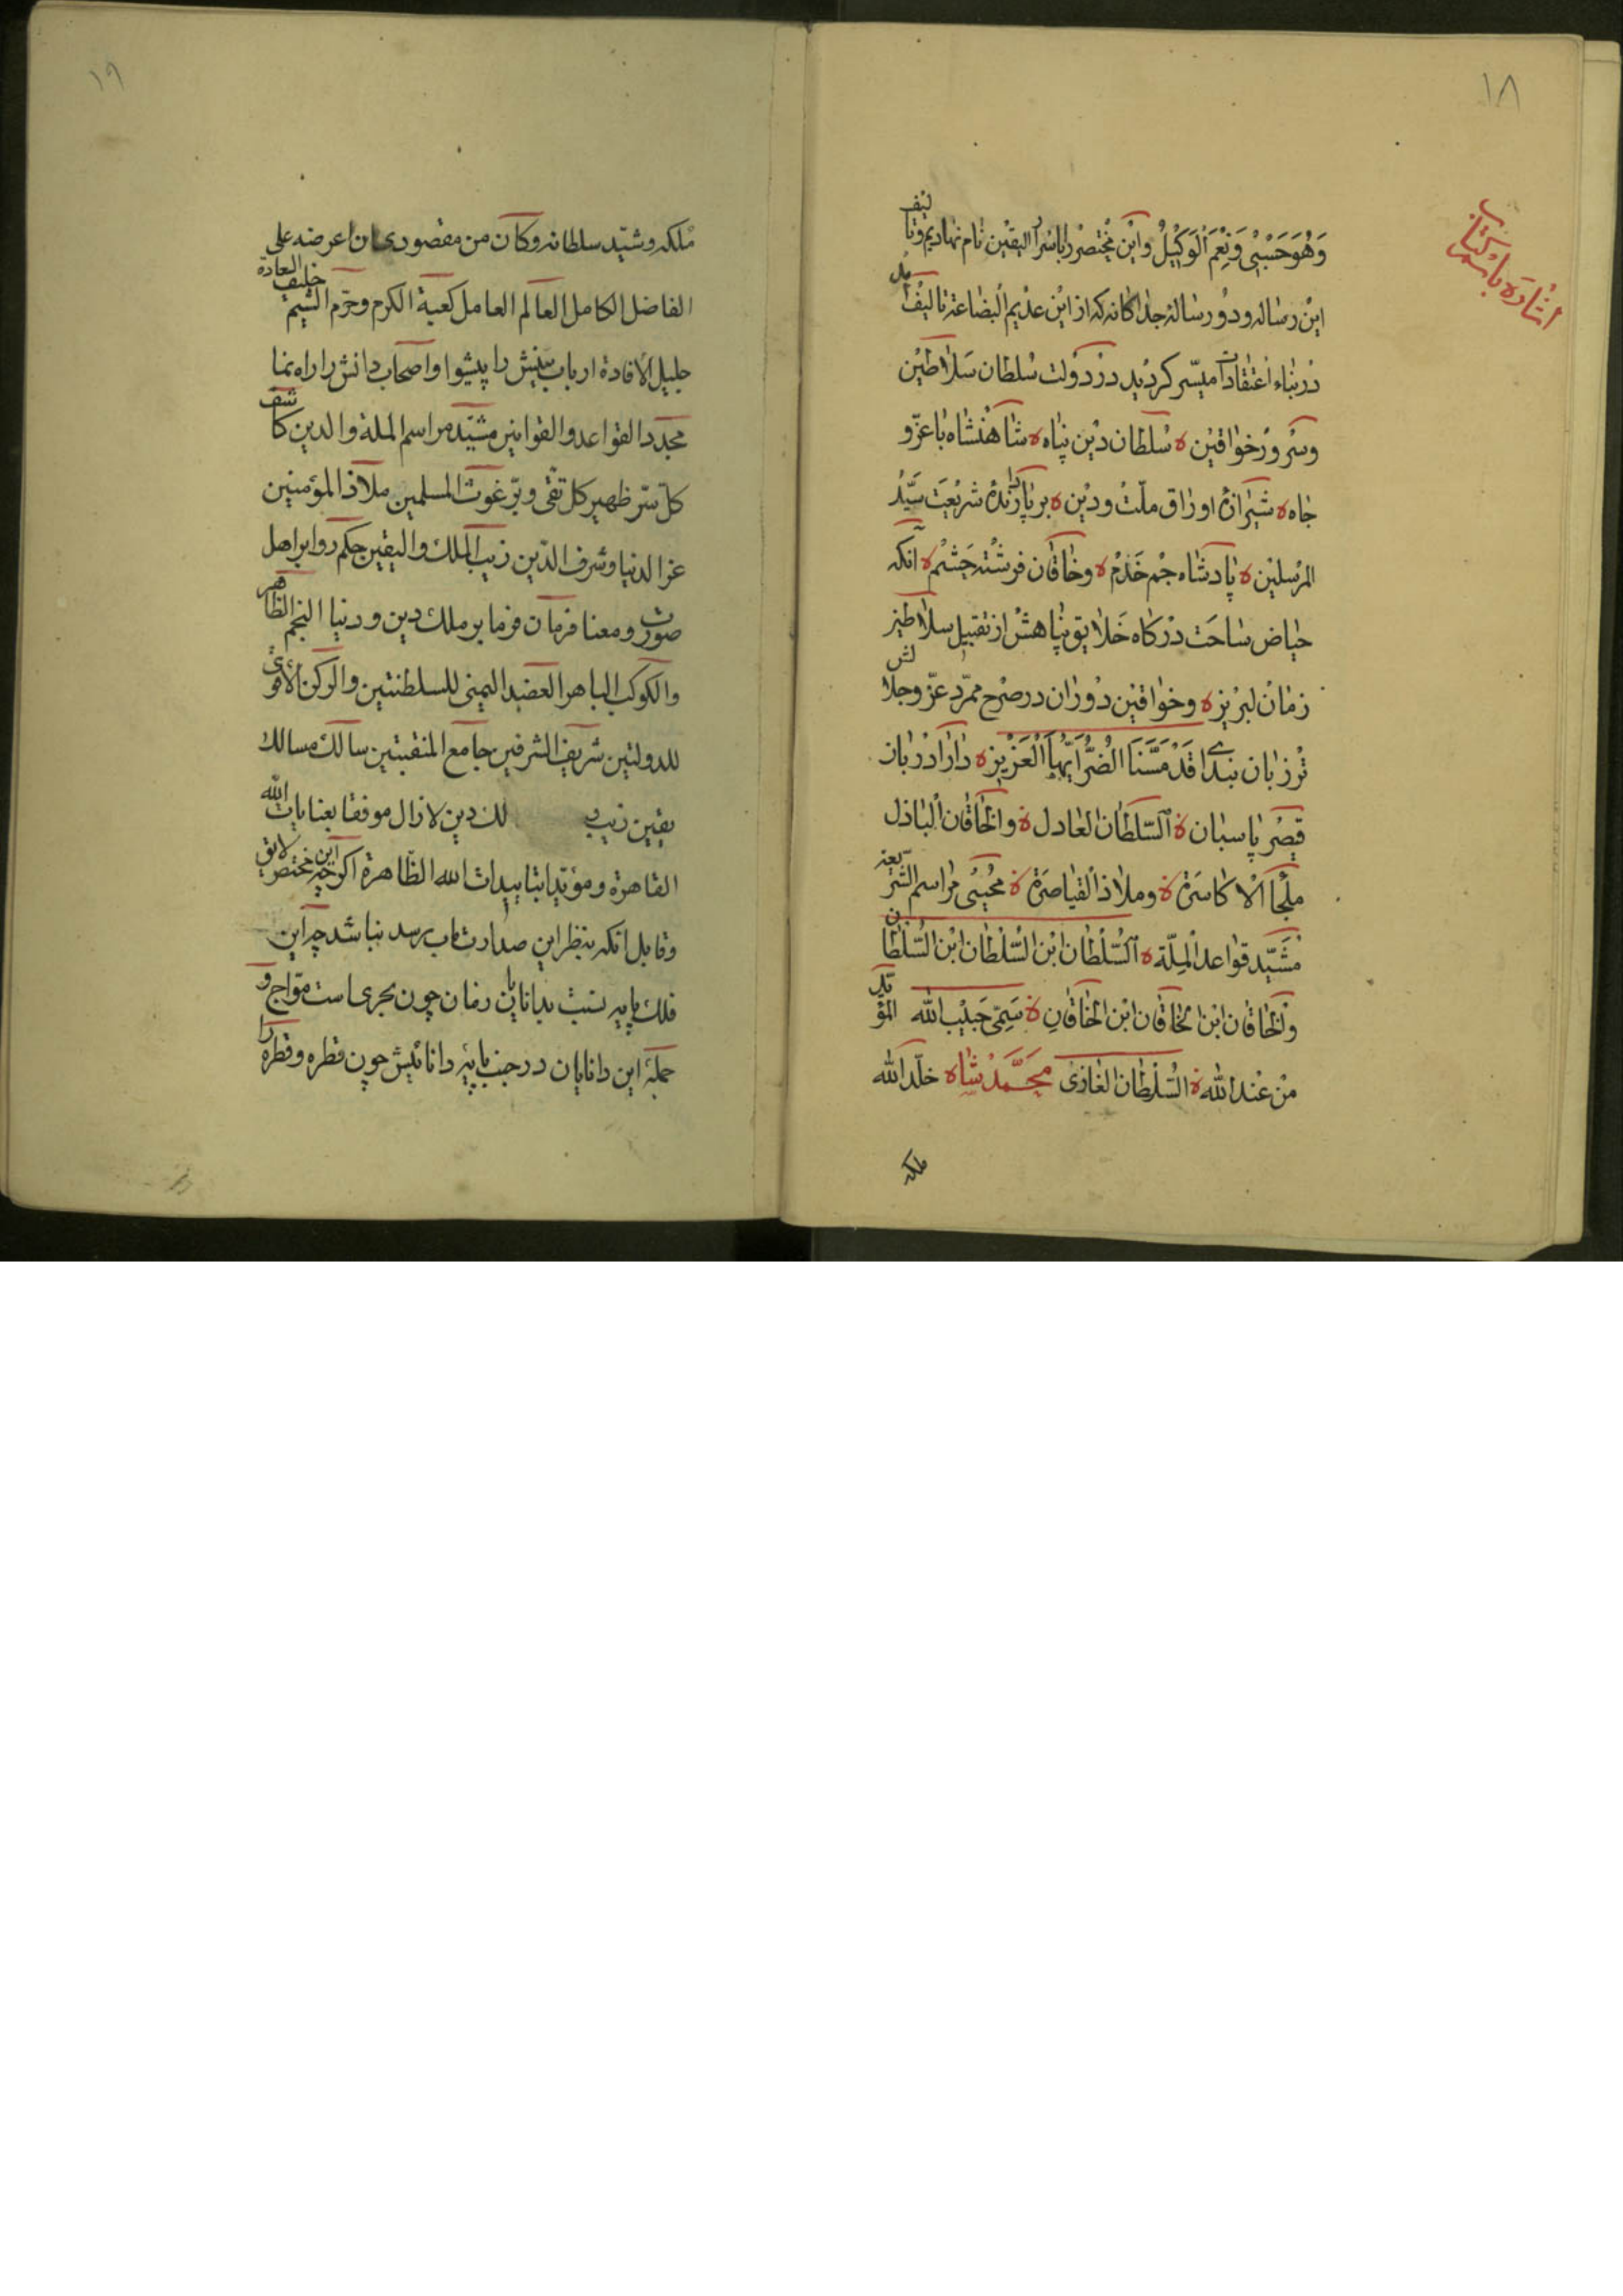 ۱۸
اشاره باسم کتاب
وَهُوَ حَسْبِیْ وَنِعْمَ الْوَکِیْلُ وایْن مُخْتصَرْ را باسْراُر الیقیْن نام نهادیم وتالیف
ایْن رساله ودُو رساله جداکانه که از ایْن عدْیم الْبضاعة تالیْف
دَرْ بناء اعتقادات میسّر کردْید درْ دَوْلت سُلطان سَلاطیْن
وسَرورْ خواقیْن ه سُلطان دیْن پناه ه شاهنْشاه باعزّ و
جاه ه شیْرازهٔ اوراق ملّتْ ودیْن ه برپا دارندهٔ شریْعَت سَیّدْ
المرْسلیْن ه پادشاه جْم خَدَمْ ه وخاقان فرشْته حَشَمْ ه آنکه
حیاض ساحَت درْکاه خَلایق پناهشْ از تقبیل سلاطین
زمانْ لبرْیز ه وخواقیْن دَوْران در صَرْح ممرّد عزّ وجلالش
تَرْزبان بندای قَدْ مَسَّنَا الضُّرُّ اَیُّهَا الْعَزْیز ه دارا دَرْبان
قیْصَر پاسبان ه السّلطان العادل ه والخاقان الْباذل
ملْجَأ الْاکاسَرَة ه وملاذ الْقیاصَرَة ه مُحْیی مراسم الشّریعة
مُشَیّد قواعد الْملّة ه السُّلْطان ابْن السُّلْطان ابْن السُّلْطان
والْخاقان ابْن الْخاقان ابْن الْخاقانِ ه سَمِیّ حَبیْب الله المؤیّد
منْ عنْد الله ه السُّلْطان الغازیْ مُحَمَّدْ شاه خلّد الله
ملکه
۱۹
ملکه وشیّد سلطانه وکان من مقصودی ان اعرضه علی
الفاضل الکامل العالم العامل کعبة الکرم وحرم الشیم خلیف العادة
جلیل الافادة ارباب بینش را پیشوا واصحاب دانش را راه نما
مجدد القواعد والقوانین مشیّد مراسم الملة والدین کاشف
کلّ سرّ ظهیر کل تقی وبرّ غوث المسلمین ملاذ المؤمنین
عز الدنیا وشرف الدّین زیب الملك والیقین حکم روا بر اهل
صورت ومعنا فرمان فرما بر ملك دین ودنیا النجم الظاهر
والکوکب الباهر العضد الیمنی للسلطنتین والرکن الاقوی
للدولتین شریف الشرفین جامع المنقبتین سالك مسالك
یقین زیب و لك دین لازال موفقا بعنایات الله
القاهرة ومؤیّدا بتاییدات الله الظّاهرة اکرچه این مختصر لایق
وقابل انکه بنظر این صدارت ماب برسد نباشد چه این
فلك پایه نسبت بدانایان زمان چون بحری است موّاج و
جملهٔ این دانایان در جنب پایهٔ دانائیش چون قطره وقطره را